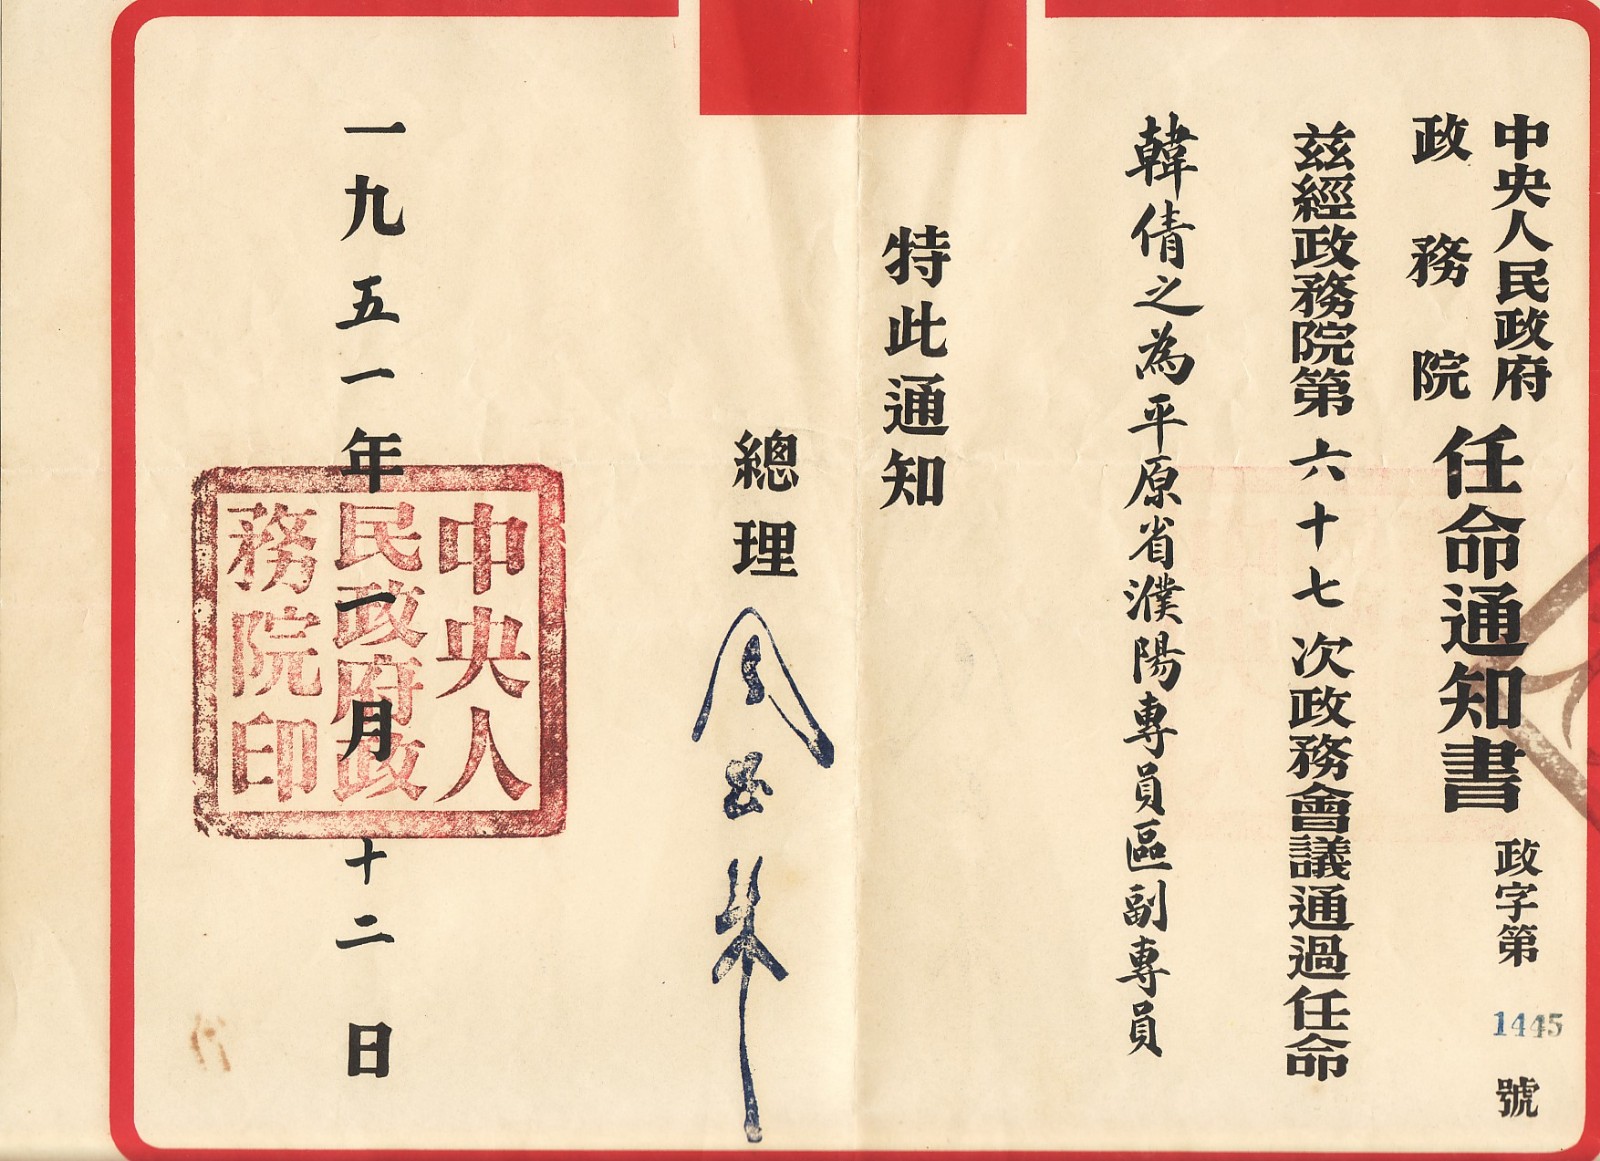 中央人民政府
政務院
任命通知書
政字第1445號
茲經政務院第六十七次政務會議通過任命
韓倩之為平原省濮陽專員區副專員
特此通知
總理 周恩来
一九五一年一月十二日
中央人民政府政務院印